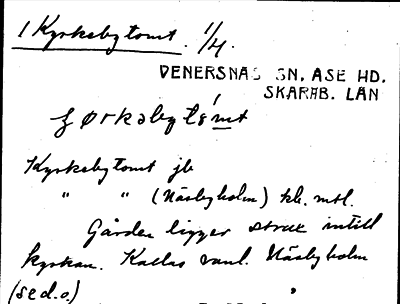 1 Kyrkebytomt. 1/4.
VENERSNÄS SN. ÅSE HD.
SKARAB. LÄN
Kyrkebytomt jb
" " (Näsbyholm) kb. mtl.
Gården ligger strax intill
kyrkan. Kallas vanl. Näsbyholm
(se d.o)